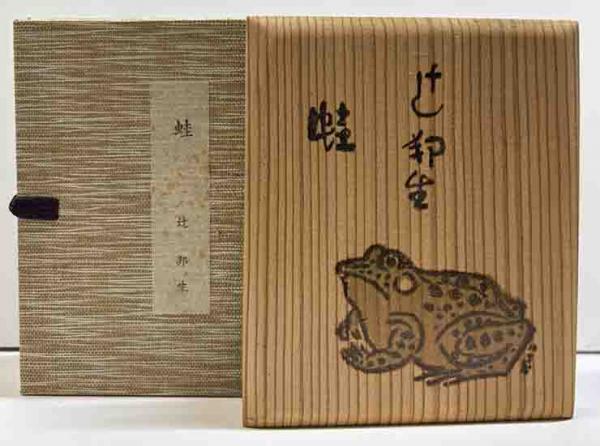 蛙
辻邦生
辻邦生
蛙